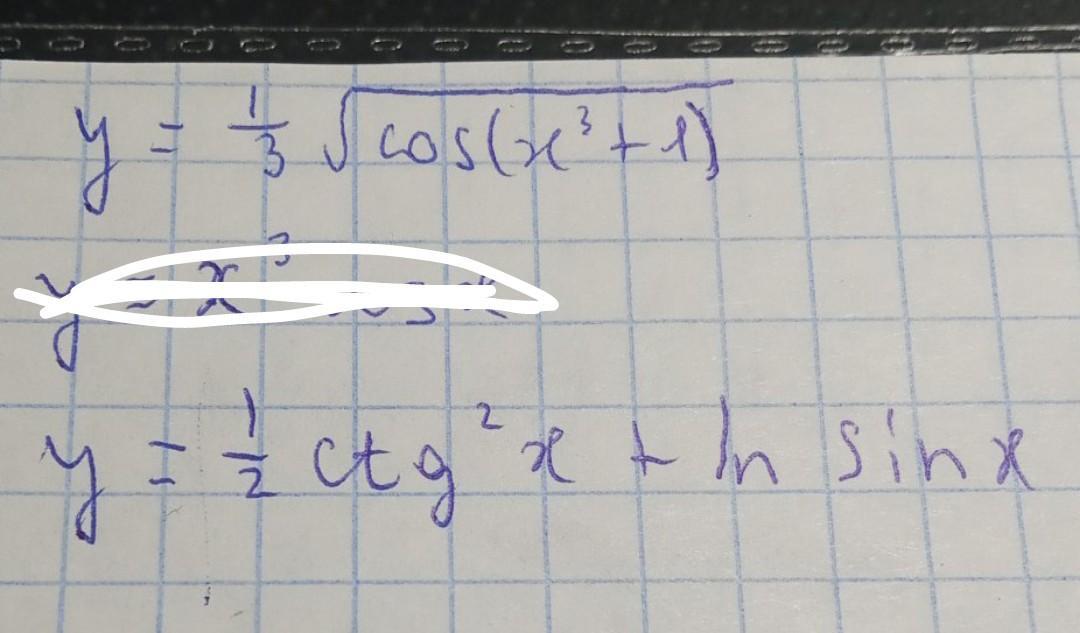 y = 1/3 √cos(x³+1)
y = x³
y = 1/2 ctg²x + ln sin x